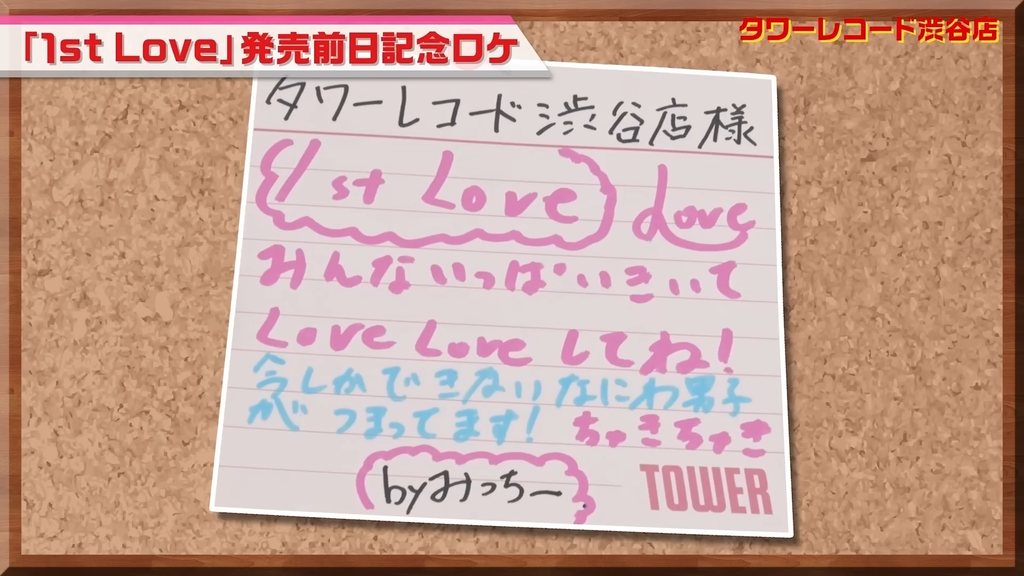 「1st Love」発売前日記念ロケ
タワーレコード渋谷店
タワーレコード渋谷店様
1st Love Love
みんないっぱいきいて
Love Love してね!
今しかできないなにわ男子
がつまってます! ちゃきちゃき
byみっちー
TOWER